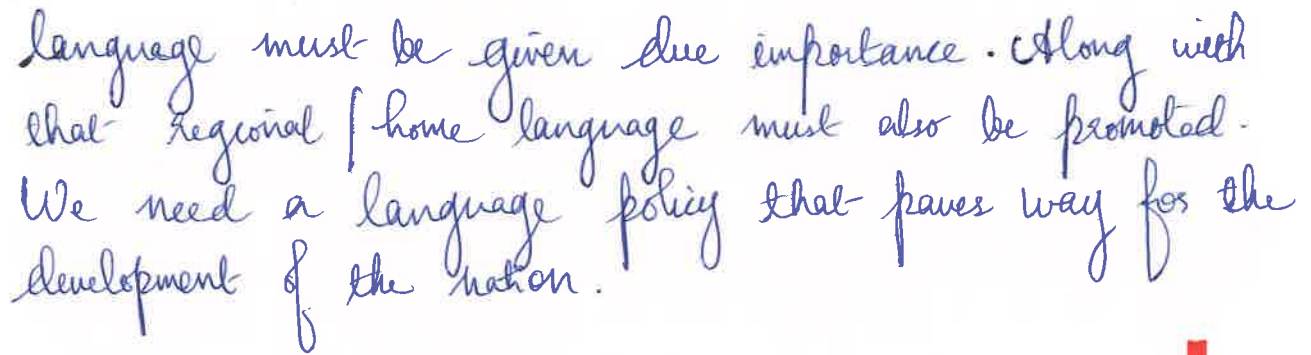 language must be given due importance. Along with
that regional / home language must also be promoted.
We need a language policy that paves way for the
development of the nation.